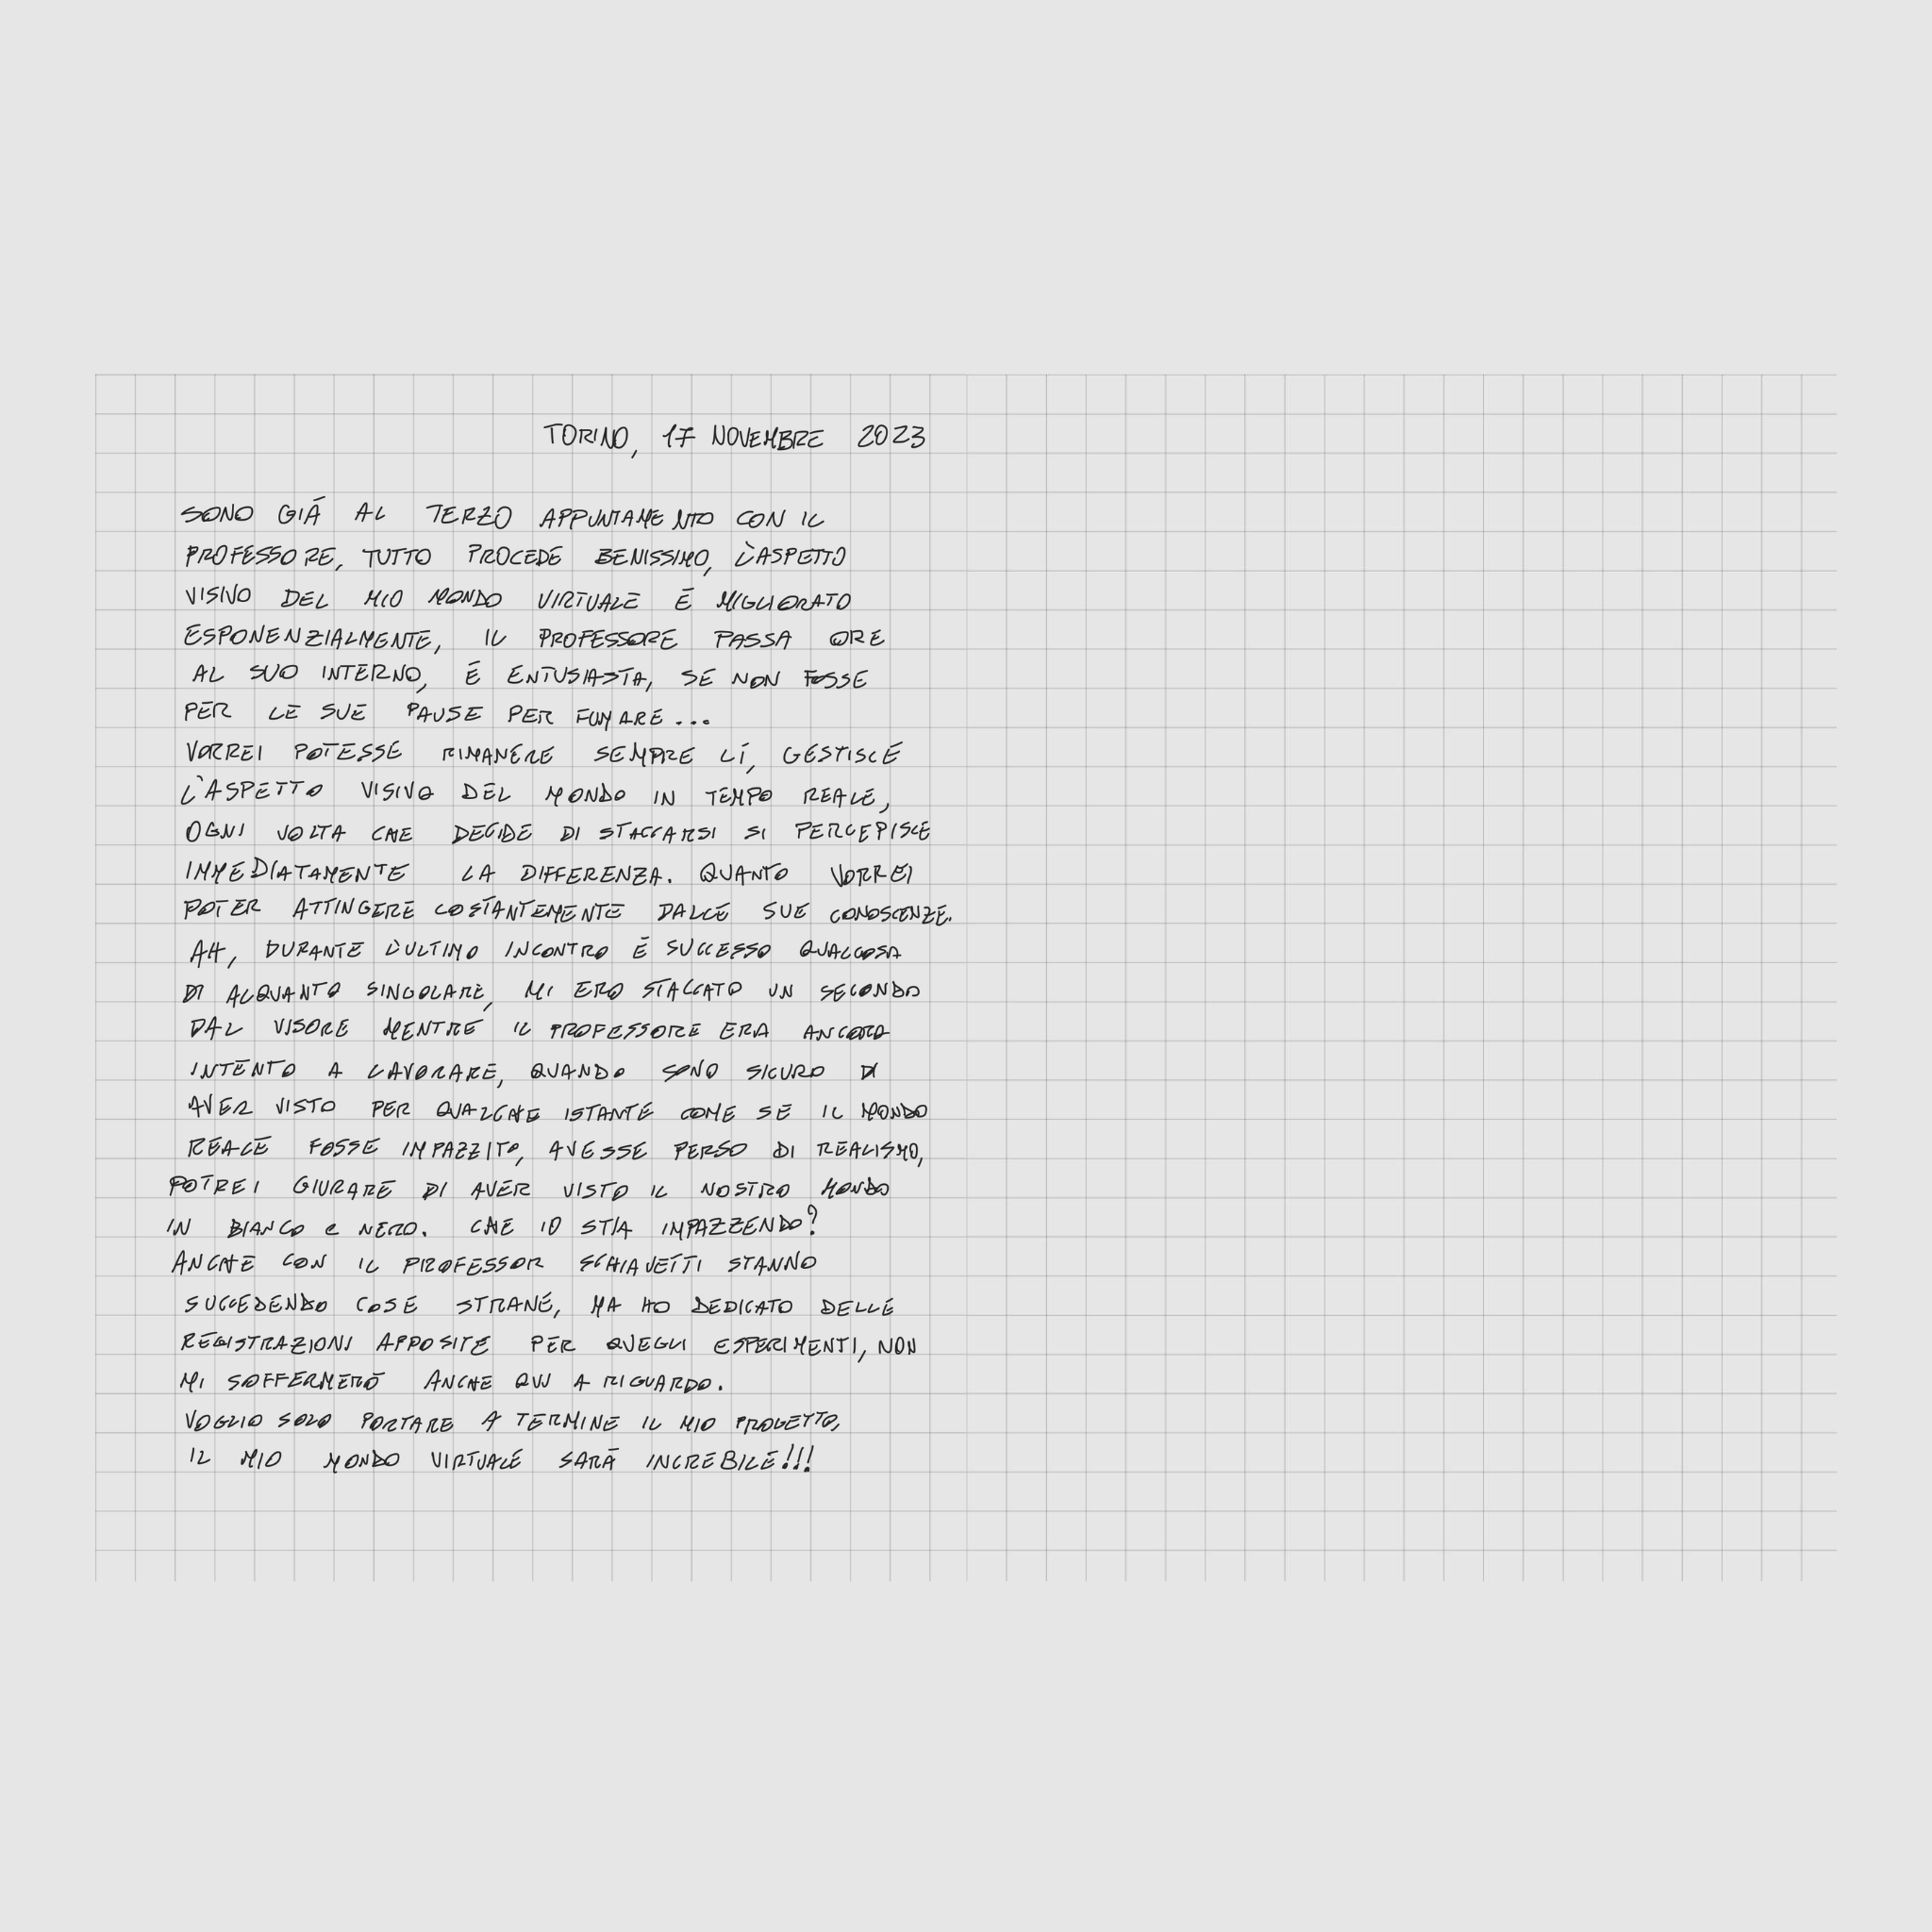 TORINO, 17 NOVEMBRE 2023
SONO GIÀ AL TERZO APPUNTAMENTO CON IL
PROFESSORE, TUTTO PROCEDE BENISSIMO, L'ASPETTO
VISIVO DEL MIO MONDO VIRTUALE È MIGLIORATO
ESPONENZIALMENTE, IL PROFESSORE PASSA ORE
AL SUO INTERNO, È ENTUSIASTA, SE NON FOSSE
PER LE SUE PAUSE PER FUMARE...
VORREI POTESSE RIMANERE SEMPRE LÌ, GESTISCE
L'ASPETTO VISIVO DEL MONDO IN TEMPO REALE,
OGNI VOLTA CHE DECIDE DI STACCARSI SI PERCEPISCE
IMMEDIATAMENTE LA DIFFERENZA. QUANTO VORREI
POTER ATTINGERE COSTANTEMENTE DALLE SUE CONOSCENZE.
AH, DURANTE L'ULTIMO INCONTRO È SUCCESSO QUALCOSA
DI ALQUANTO SINGOLARE, MI ERO STACCATO UN SECONDO
DAL VISORE MENTRE IL PROFESSORE ERA ANCORA
INTENTO A LAVORARE, QUANDO SONO SICURO DI
AVER VISTO PER QUALCHE ISTANTE COME SE IL MONDO
REALE FOSSE IMPAZZITO, AVESSE PERSO DI REALISMO,
POTREI GIURARE DI AVER VISTO IL NOSTRO MONDO
IN BIANCO e NERO. CHE IO STIA IMPAZZENDO?
ANCHE CON IL PROFESSOR SCHIAVETTI STANNO
SUCCEDENDO COSE STRANE, MA HO DEDICATO DELLE
REGISTRAZIONI APPOSITE PER QUEGLI ESPERIMENTI, NON
MI SOFFERMERÒ ANCHE QUI A RIGUARDO.
VOGLIO SOLO PORTARE A TERMINE IL MIO PROGETTO,
IL MIO MONDO VIRTUALE SARÀ INCREBILE!!!